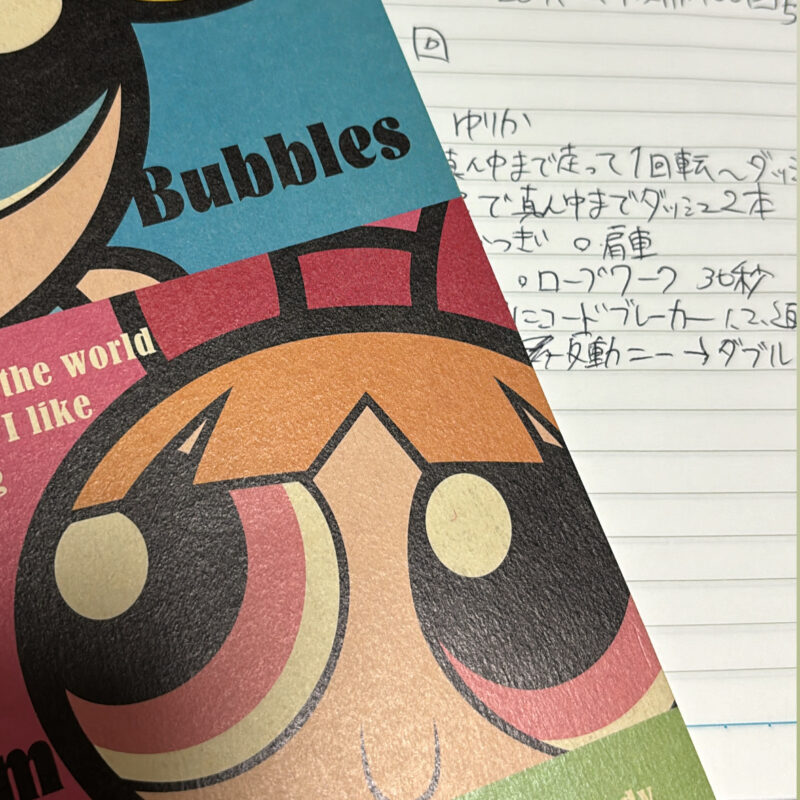 Bubbles
the world
I like
g
m
dy
回
ゆりか
真ん中まで走って1回転〜ダッシ
で真ん中までダッシュ2本
っきい ○肩車
○ロープワーク 30秒
コードブレーカー
反動ニー→ダブル